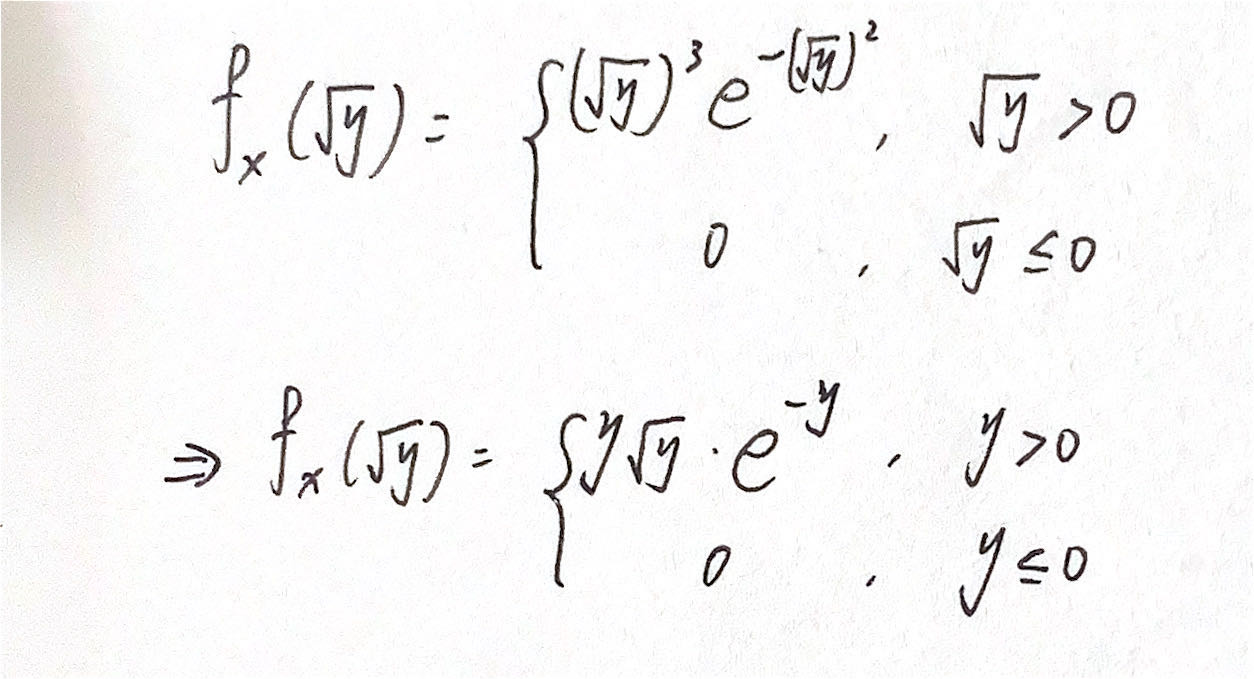 fₓ(√y) = { (√y)³ e^{-(√y)²} , √y > 0
0 , √y ≤ 0
⇒ fₓ(√y) = { y√y · e^{-y} , y > 0
0 , y ≤ 0